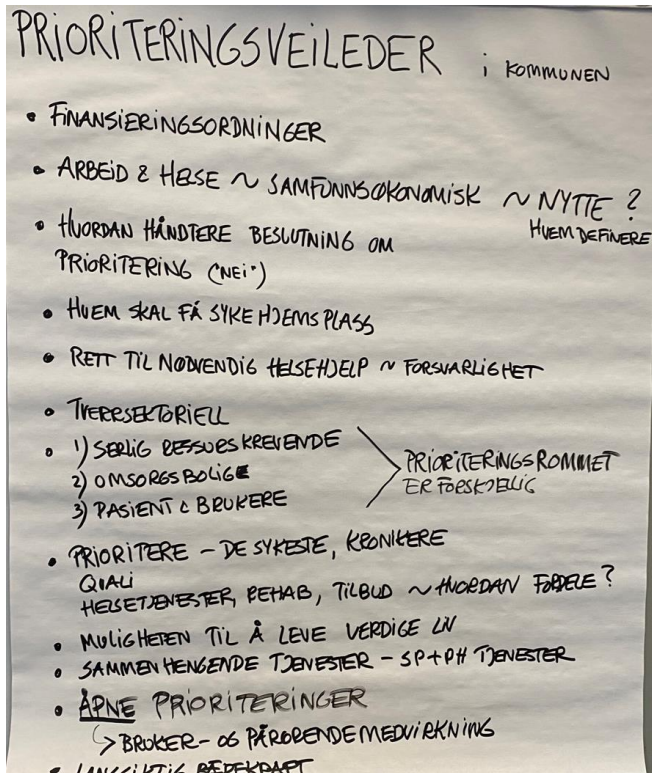 PRIORITERINGSVEILEDER i KOMMUNEN
• FINANSIERINGSORDNINGER
• ARBEID & HELSE ~ SAMFUNNSØKONOMISK ~ NYTTE ?
HVEM DEFINERE
• HVORDAN HÅNDTERE BESLUTNING OM
PRIORITERING ("NEI")
• HVEM SKAL FÅ SYKEHJEMSPLASS
• RETT TIL NØDVENDIG HELSEHJELP ~ FORSVARLIGHET
• TVERRSEKTORIELL
• 1) SERLIG RESSURSKREVENDE
2) OMSORGSBOLIGE
3) PASIENT & BRUKERE
PRIORITERINGSROMMET
ER FORSKJELLIG
• PRIORITERE – DE SYKESTE, KRONIKERE
QUALI
HELSETJENESTER, REHAB, TILBUD ~ HVORDAN FORDELE?
• MULIGHETEN TIL Å LEVE VERDIGE LIV
• SAMMENHENGENDE TJENESTER – SP+PH TJENESTER
• ÅPNE PRIORITERINGER
↳ BRUKER- OG PÅRØRENDEMEDVIRKNING
• LANGSIKTIG BÆREKRAFT